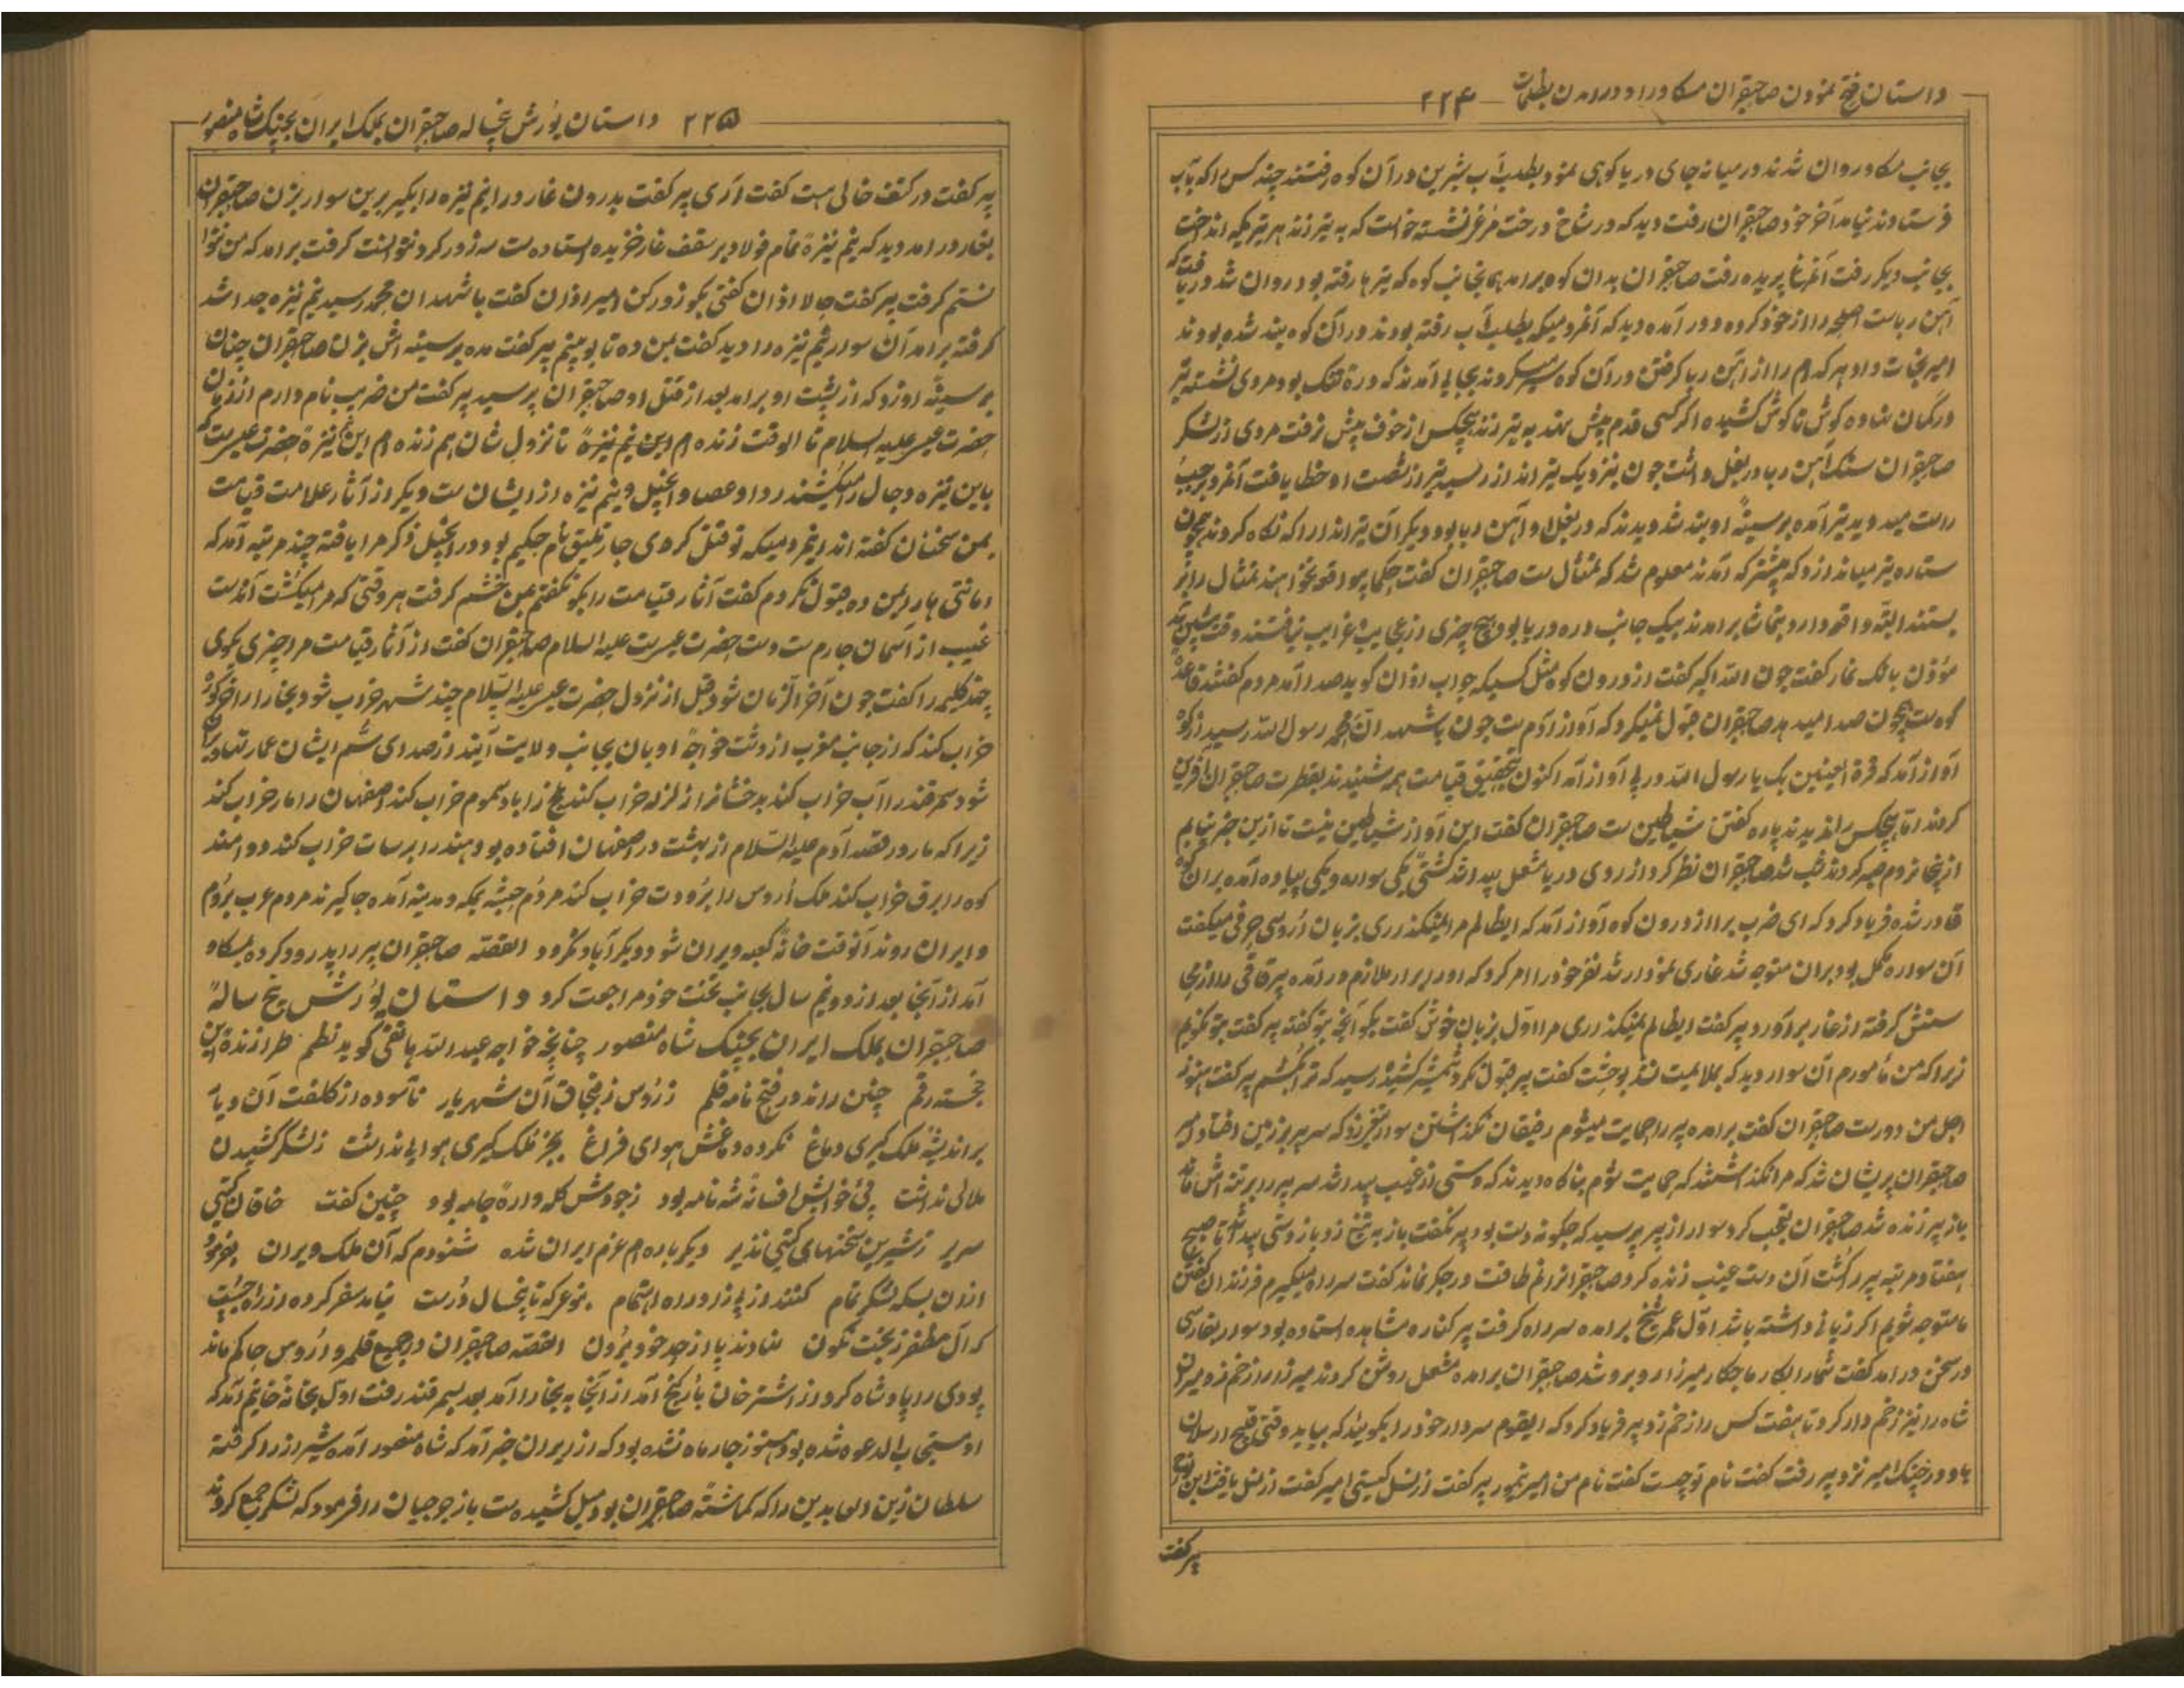 داستان فتح نمودن صاحبقران مسکاو را و درآمدن بظلمات ۲۲۴
بجانب مسکاو روان شدند در میانه جای دریا کوهی نمود بطلب آب شیرین در آن کوه رفتند چند کس را که بآب
فرستادند نیامد آخر خود صاحبقران رفت دید که در شاخ درخت مرغی نشسته خواست که به تیر زند هر تیریکه انداخت
بجانب دیگر رفت آنمرغ پریده رفت صاحبقران بدان کوه برآمد همانجانب کوه که تیرها رفته بود روان شد دریافت که
آهن ربا است اصلحه را از خود کرده دور آمده دید که آنمردمیکه بطلب آب رفته بودند در آن کوه بند شده بودند
امیر نجات داد هر کدام را از آهن ربا گرفتن در آن کوه سیر میکردند بجایی آمدند که دره تنک بود مردی نشسته تیر
در کمان نهاده گوش تا گوش کشیده اگر کسی قدم پیش نهد به تیر زند هیچکس از خوف پیش نرفت مردی از لشکر
صاحبقران سنک آهن ربا در بغل داشت چون نزدیک تیرانداز رسید تیر از شصت او خطا یافت آنمرد جیب
راست میدوید تیر آمده بر سینهٔ او بند شد دیدند که در بغل او آهن ربا بود دیگر آن تیرانداز را که نگاه کردند همچون
ستاره تیر میاندازد که پیشتر که آمدند معلوم شد که تمثال ست صاحبقران گفت حکما بیواقعه نخواهند تمثال را بر
بستند البته واقعه دارد بتماشا برآمدند بیک جانب دره دریا بود هیچ چیزی از عجایب و غرایب نیافتند وقت پیشین شد
مؤذن بانک نماز گفت چون الله اکبر گفت از درون کوه مثل کسیکه جواب اذان گوید صدا آمد مردم گفتند قاعدهٔ
کوه ست همچون صدا میدهد صاحبقران قبول نمیکرد که آواز آدم ست چون باشهد ان محمد رسول الله رسید از کوه
آواز آمد که قرة العینین بک یا رسول الله در پی آواز آمد اکنون بتحقیق قیامت همه شنیدند بفطرت صاحبقران آفرین
کردند اما هیچکس را ندیدند پاره گفتن شیاطین ست صاحبقران گفت این آواز شیاطین نیست تا ازین خبر نیابم
از اینجا نروم صبر کردند شب شد صاحبقران نظر کرد از روی دریا مشعل پیدا شد کشتی یکی سواره و یکی پیاده آمده بر آن کوه
قادر شده فریاد کرد که ای ضرب برا از درون کوه آواز آمد که ایظالم مرا نمیگذاری بزبان اروسی حرفی میگفت
آن سواره مکمل بود بر آن متوجه شد غاری نمودار شد نفر خود را امر کرد که او را بیار ملازم درآمده پیر قاقی را از بجا
ستش گرفته از غار برآورد پیر گفت ایظالم نمیگذاری مرا اول بزبان خوش گفت بگو آنچه بتو گفته پیر گفت بتو نگویم
زیرا که من مأمورم آن سوار دید که بملایمت نشد بوحشت گفت پیر قبول نکرد شمشیر کشید رسید که ترا میکشم پیر گفت هنوز
اجل من دور است صاحبقران گفت برآمده پیر را حمایت میشوم رفیقان نگذاشتن سوار تیغ زد که سر پیر بزمین افتاد دل
صاحبقران پریشان شد که مرا نگذاشتند که حمایت شوم بناگاه دیدند که دستی از غیب پیدا شد سر پیر را برتنه اش ماند
باز پیر زنده شد صاحبقران تعجب کرد سوار از پیر پرسید که چگونه دست بود پیر نگفت باز به تیغ زد باز دستی پیدا شد تا صبح
هفتاد مرتبه پیر را کشت آن دست غیب زنده کرد صاحبقران را غم طاقت در جگر نماند گفت سر راه میگیرم فرزندان گفتن
ما متوجه شویم اگر زیانی داشته باشد اول عمر شیخ برآمده سر راه گرفت پیر کناره مشاهده استاده بود سوار بفارسی
در سخن درآمد گفت شما را بکار ما چکار میرزا روبرو شد صاحبقران برآمده مشعل روشن کردند میرزا را زخم زد میران
شاه را نیز زخم دار کرد تا هفت کس را زخم زد پیر فریاد کرد که ایقوم سردار خود را بگویید که بیاید وقتی قلیچ ارسلان
باو در جنک امیر نزد پیر رفت گفت نام تو چیست گفت نام من امیر تیمور پیر گفت از نسل کیستی امیر گفت از نسل یافث ابن نوح
پیر گفت
۲۲۵ داستان یورش پنج ساله صاحبقران بملک ایران بجنک شاه منصور
پیر گفت در کتف خالی هست گفت آری پیر گفت بدرون غار درا نیم نیزه را بگیر برین سوار بزن صاحبقران
بغار درآمد دید که نیم نیزهٔ تمام فولاد بر سقف غار خزیده استاده ست سه زور کرد نتوانست گرفت برآمد که من نتوا
نستم گرفت پیر گفت حالا اذان گفتی بگو زور کن امیر اذان گفت باشهد ان محمد رسید نیم نیزه جدا شد
گرفته برآمد آن سوار نیم نیزه را دید گفت بمن ده تا بوبینم پیر گفت مده بر سینه اش بزن صاحبقران چنان
بر سینهٔ او زد که از پشت او برآمد بعد از قتل او صاحبقران پرسید پیر گفت من ضریب نام دارم از زمان
حضرت عیسی علیه السلام تا الوقت زنده ام این نیم نیزهٔ تا نزول شان هم زنده ام این نیم نیزهٔ حضرت عیسی ست که
باین نیزه دجال را میکشند ردا و عصا و انجیل و نیم نیزه از ایشان ست و دیگر از آثار علامت قیامت
بمن سخنان گفته اند اینمردمیکه تو قتل کردی جار تلیق نام حکیم بود در انجیل ذکر مرا یافته چند مرتبه آمد که
امانتی ها را بمن ده قبول نکردم گفت آثار قیامت را بگو نگفتم بمن خشم گرفت هر وقتی که مرا میکشت آندست
غیب از آسمان چارم ست دست حضرت عیسی ست علیه السلام صاحبقران گفت از آثار قیامت مرا چیزی بگوی
چند کلیمه را گفت چون آخر الزمان شود قبل از نزول حضرت عیسی علیه السلام چند شهر خراب شود بخارا را خرکوز
خراب کند که از جانب مغرب از دشت خواجهٔ اوبان بجانب ولایت آیند از صدای سُم ایشان عمارتها ویران
شود سمرقند را آب خراب کند بدخشانرا زلزله خراب کند بلخ را باد سموم خراب کند اصفهان را مار خراب کند
زیرا که مار در قصهٔ آدم علیه السلام از بهشت در اصفهان افتاده بود هند را برسات خراب کند دوامند
کوه را برق خراب کند ملک اُروس را برودت خراب کند مردم حبشه بمکه و مدینه آمده جا گیرند مردم عرب بروم
و ایران روند آنوقت خانهٔ کعبه ویران شود دیگر آباد نگردد القصه صاحبقران پیر را پدرود کرده بمسکاو
آمد از آنجا بعد از دو نیم سال بجانب تخت خود مراجعت کرد داستان یورش پنج سالهٔ
صاحبقران بملک ایران بجنک شاه منصور چنانچه خواجه عبدالله هاتفی گوید نظم طرازندهٔ این
خجسته رقم چنین راند در فتح نامه قلم ز روس ز قبچاق آن شهریار ناسوده از کلفت آن دیار
بر اندیشهٔ ملک گیری دماغ نکرده دماغش هوای فراغ بجز ملک گیری هوایی نداشت ز لشکر کشیدن
ملالی نداشت پی خوابش افسانه شه نامه بود زجودش کله واره جامه بود چنین گفت خاقان گیتی
سریر ز شیرین سخنهای گیتی نذیر دیگر باره ام عزم ایران شده شنودم که آن ملک ویران
ازان بسکه لشکر تمام کنند از پی زاد راه اهتمام بنوعیکه تا پنج سال درست نیامد سفر کرده از راه جست
که آل مظفر ز بخت نگون نهادند پا از حد خود برون القصه صاحبقران در جمیع قلمرو اروس حاکم ماند
بودی را پادشاه کرد از اشترخان به ارکنج آمد از آنجا به بخارا آمد بعد بسمرقند رفت اول بخانهٔ خانیم آمد که
او مستجاب الدعوه شده بود هنوز چار ماه نشده بود که از ایران خبر آمد که شاه منصور آمده شیراز را گرفته
سلطان زین العابدین را که گماشتهٔ صاحبقران بود میل کشیده ست باز جوجیان را فرمود که لشکر جمع کردند